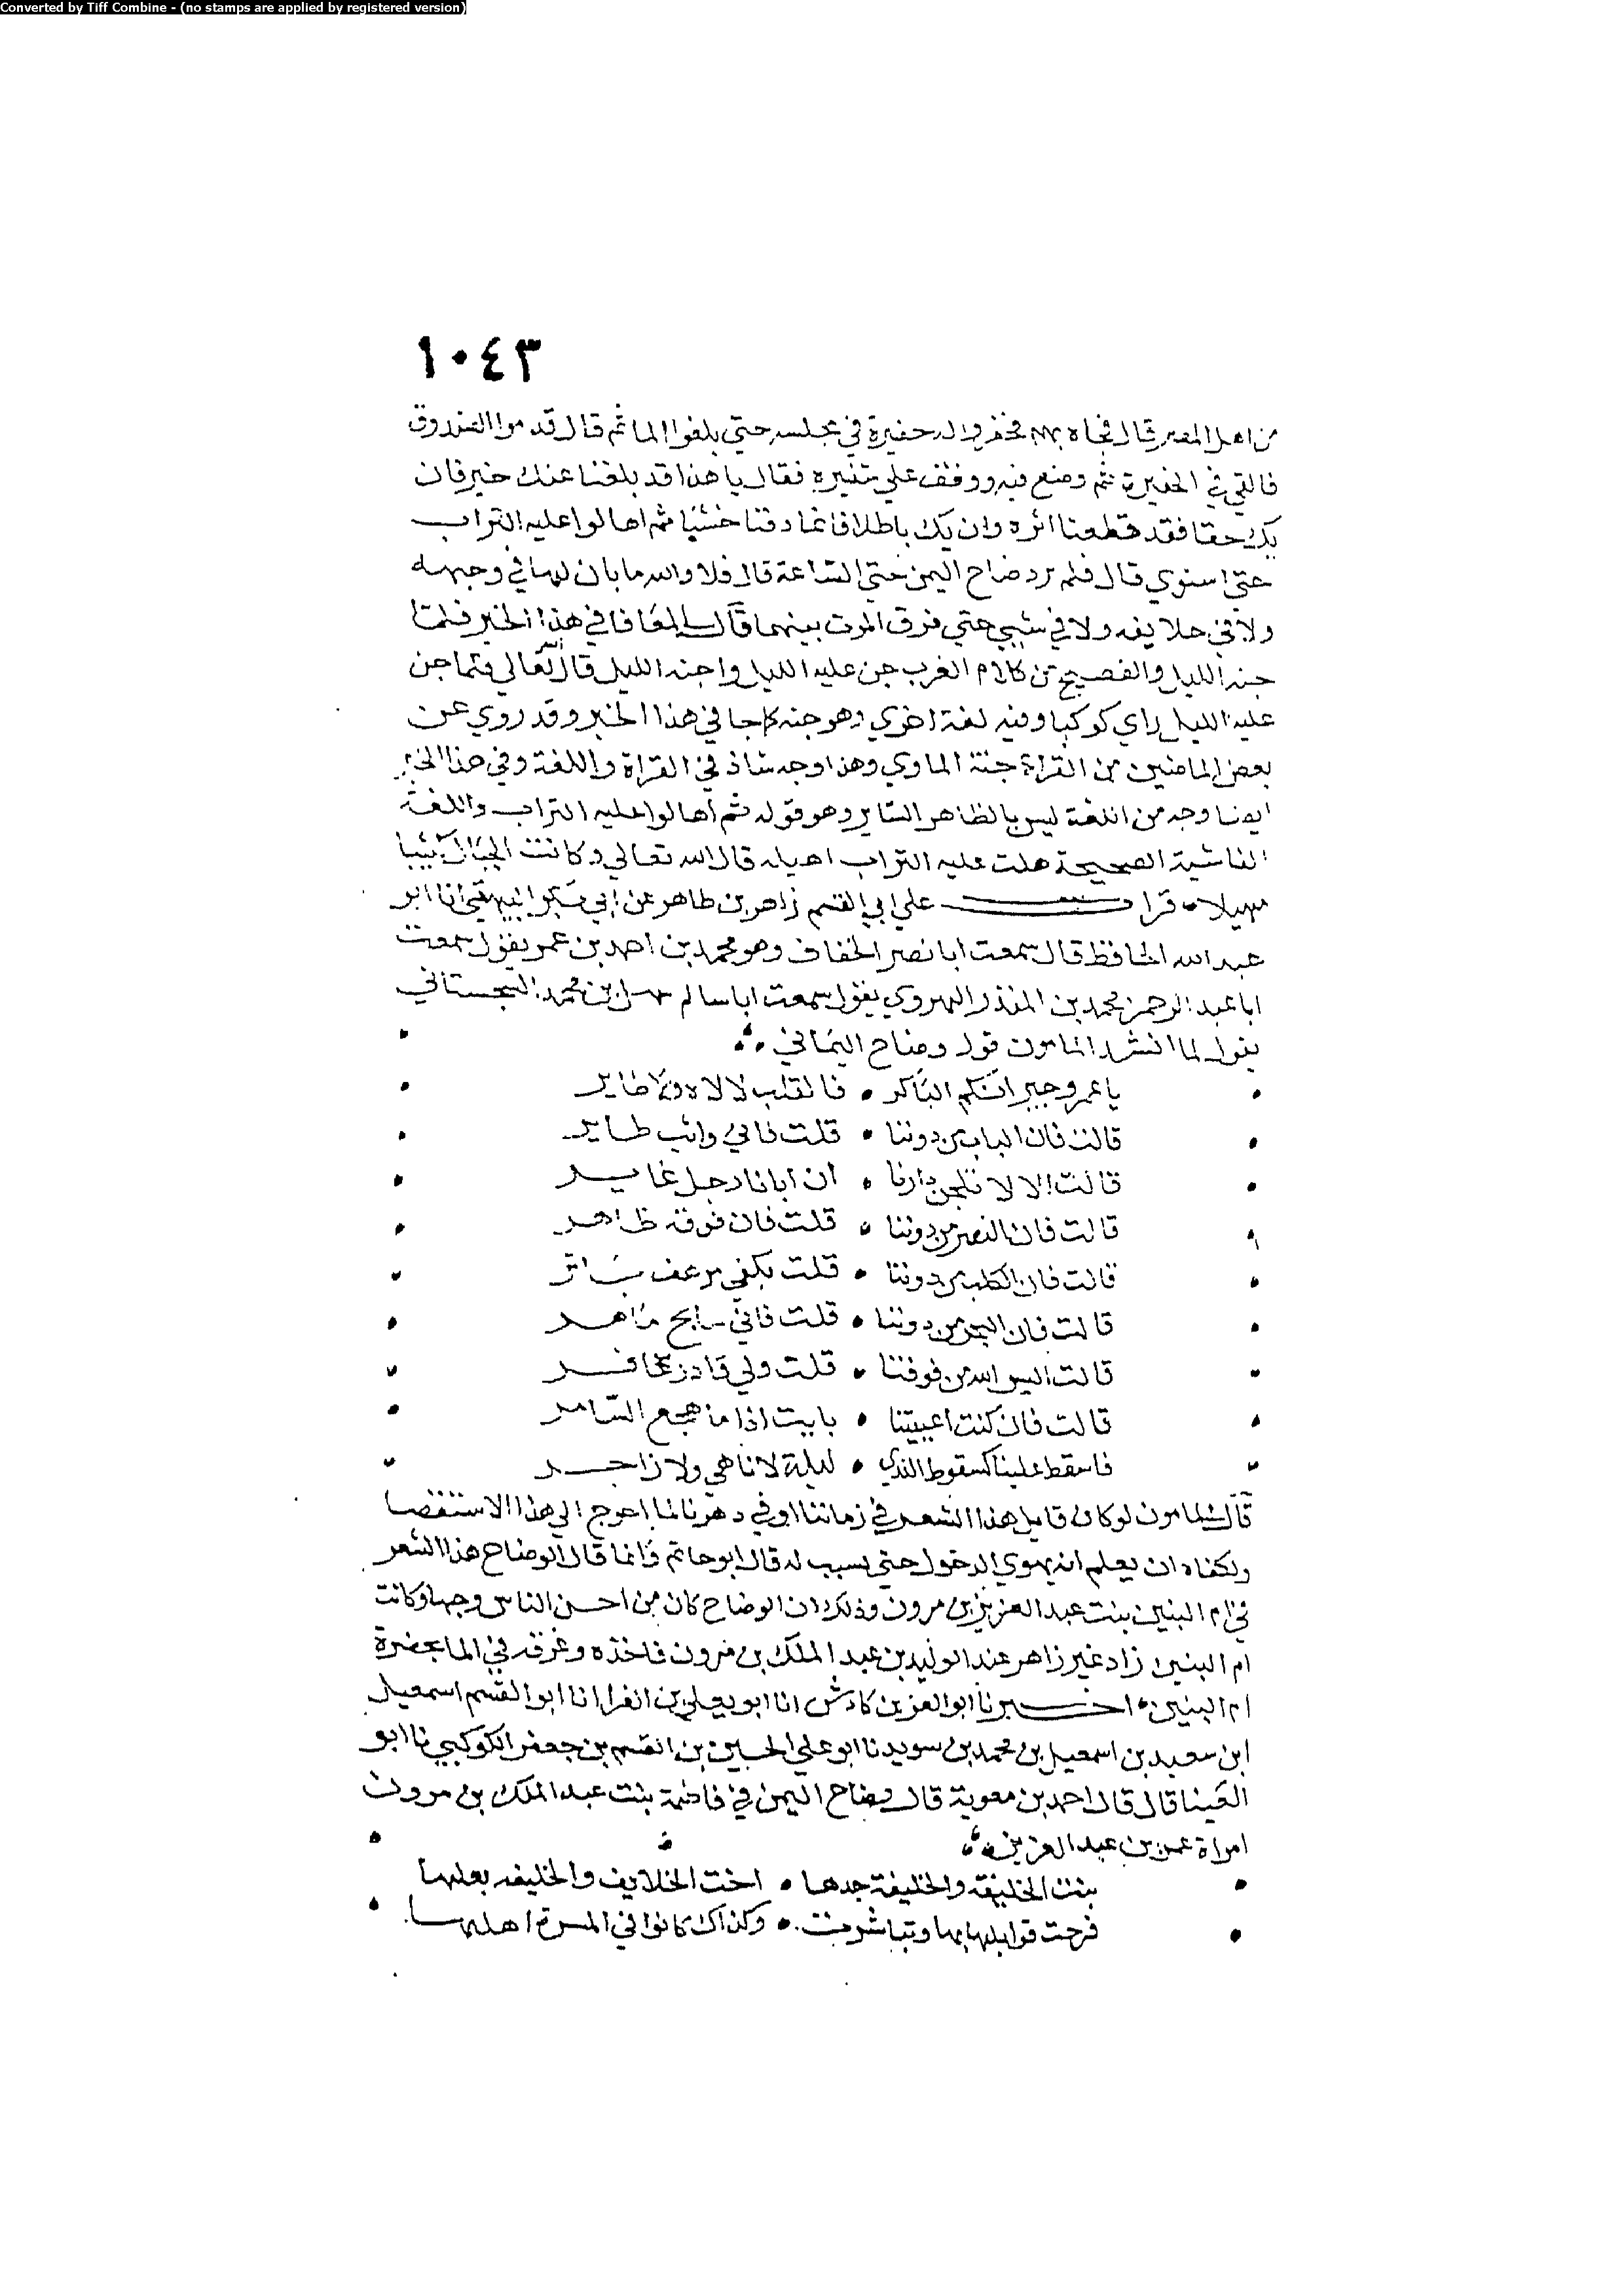 Converted by Tiff Combine - (no stamps are applied by registered version)
١٠٤٣
من اهل المصر قال فجاه بهم فحفروا له حفيرة في مجلسه حتى بلغوا الما ثم قال قدموا الصندوق
فالقي في الحفيرة ثم وضع فيه ووقف على شفيره فقال يا هذا قد بلغنا عنك خبر فان
يك حقا فقد قطعنا اثره وان يك باطلا فانما دفنا خشبا ثم اهالوا عليه التراب
حتى استوي قال فلم ير وضاح اليمن حتى الساعة قال فلا والله ما بان لها في وجهه
ولا في خلايقه ولا في شيي حتى فرق الموت بينهما قال المعافا في هذا الخبر فلما
جنه الليل والفصيح من كلام العرب جن عليه الليل واجنه الليل قال الله تعالى فلما جن
عليه الليل راي كوكبا وفيه لغة اخري وهو جنه كما جا في هذا الخبر وقد روي عن
بعض الماضين من القراة جنه الماوي وهذا وجه شاذ في القراة واللغة وفي هذا الخبر
ايضا وجه من اللغة ليس بالظاهر الساير وهو قوله ثم اهالوا عليه التراب واللغة
الفاشية الصحيحة هلت عليه التراب اهيله قال الله تعالى وكانت الجبال كثيبا
مهيلا قرات علي ابي القسم زاهر بن طاهر عن ابي بكر البيهقي انا ابو
عبد الله الحافظ قال سمعت ابا نصر الخفاف وهو محمد بن احمد بن عمر يقول سمعت
ابا عبد الرحمن محمد بن المنذر الهروي يقول سمعت ابا سالم سهل بن محمد السجستاني
يقول لما انشد المامون قول وضاح اليماني
يا عمرو جيرانكم الباكر • فالقلب لا لاه ولا صاير
قالت فان الباب من دوننا • قلت فاني واثب طاير
قالت الا لا تلجن دارنا • ان ابانا رجل غاير
قالت فان القصر من دوننا • قلت فاني فوقه ظاهر
قالت فان الكلب من دوننا • قلت بكفي مرهف باتر
قالت فان البحر من دوننا • قلت فاني سابح ماهر
قالت اليس الله من فوقنا • قلت ولي قادر غافر
قالت فان كنت اعييتنا • بايت اذا ما هجع السامر
فاسقط علينا كسقوط الندي • ليلة لا ناهي ولا زاجر
قال المامون لو كان قايل هذا الشعر في زماننا او في دهرنا لما احوج الي هذا الاستقصا
ولكفاه ان يعلم انه يهوي الدخول حتى يسبب له قال ابو حاتم وانما قال الوضاح هذا الشعر
في ام البنين بنت عبد العزيز بن مرون وذلك ان الوضاح كان من احسن الناس وجها وكانت
ام البنين زاد غير زاهر عند الوليد بن عبد الملك بن مرون فاخذه وغرقه في الما بحضرة
ام البنين اخبرنا ابو العز بن كادش انا ابو يعلي بن الفرا انا ابو القسم اسمعيل
ابن سعيد بن اسمعيل بن محمد بن سويد نا ابو علي الحسين بن القسم بن جعفر الكوكبي نا ابو
العينا قال قال احمد بن معوية قال وضاح اليمن في فاطمة بنت عبد الملك بن مرون
امراة عمر بن عبد العزيز
بنت الخليفة والخليفة جدها • اخت الخلايف والخليفه بعلها
فرحت قوابلها بها وتباشرت • وكذاك كانوا في المسرة اهلها